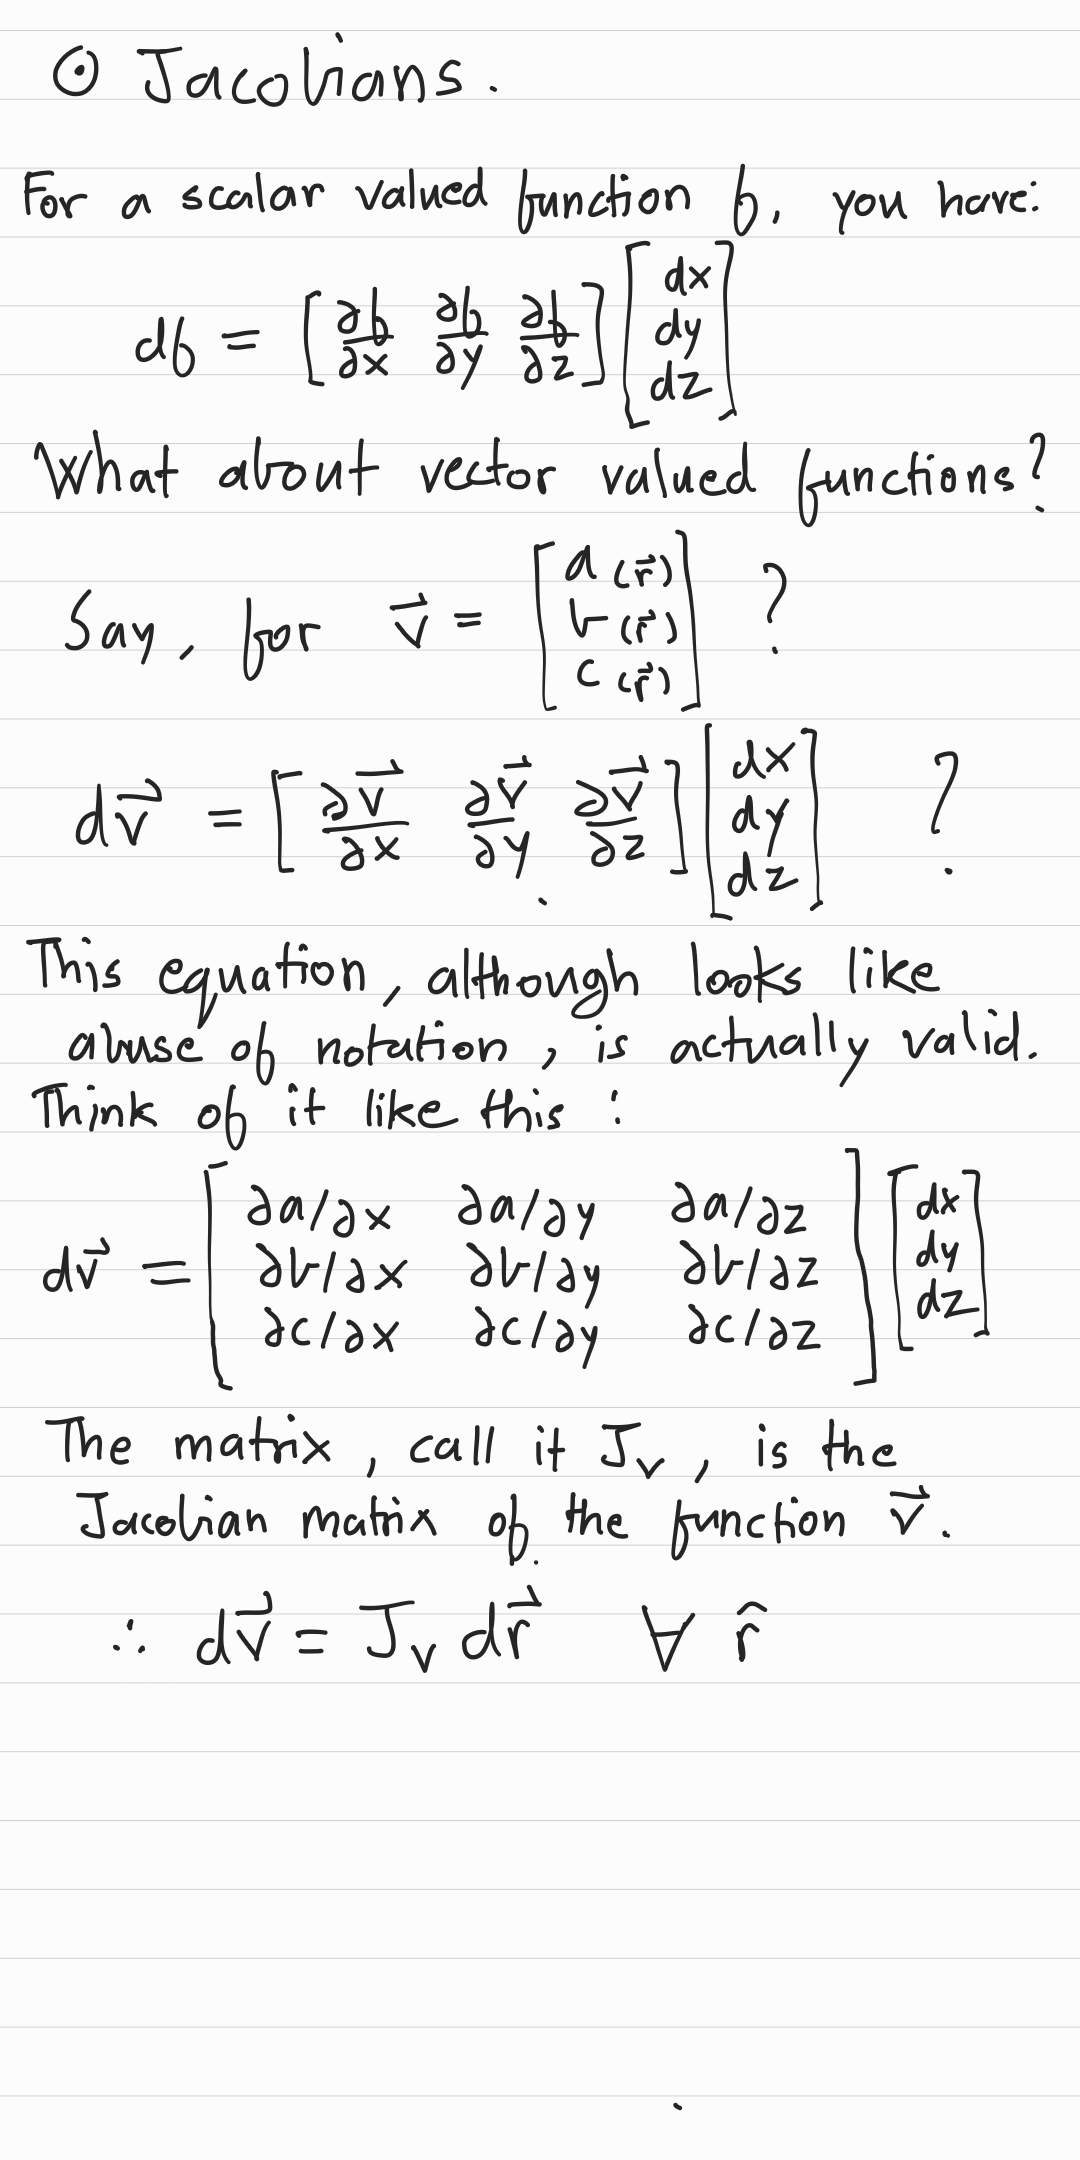 ⊙ Jacobians.
For a scalar valued function f, you have:
df = [∂f/∂x ∂f/∂y ∂f/∂z] [dx dy dz]
What about vector valued functions?
Say, for v⃗ = [a(r⃗) b(r⃗) c(r⃗)] ?
dv⃗ = [∂v⃗/∂x ∂v⃗/∂y ∂v⃗/∂z] [dx dy dz] ?
This equation, although looks like
abuse of notation, is actually valid.
Think of it like this:
dv⃗ = [∂a/∂x ∂a/∂y ∂a/∂z
∂b/∂x ∂b/∂y ∂b/∂z
∂c/∂x ∂c/∂y ∂c/∂z] [dx dy dz]
The matrix, call it Jᵥ, is the
Jacobian matrix of the function v⃗.
∴ dv⃗ = Jᵥ dr⃗ ∀ r̂